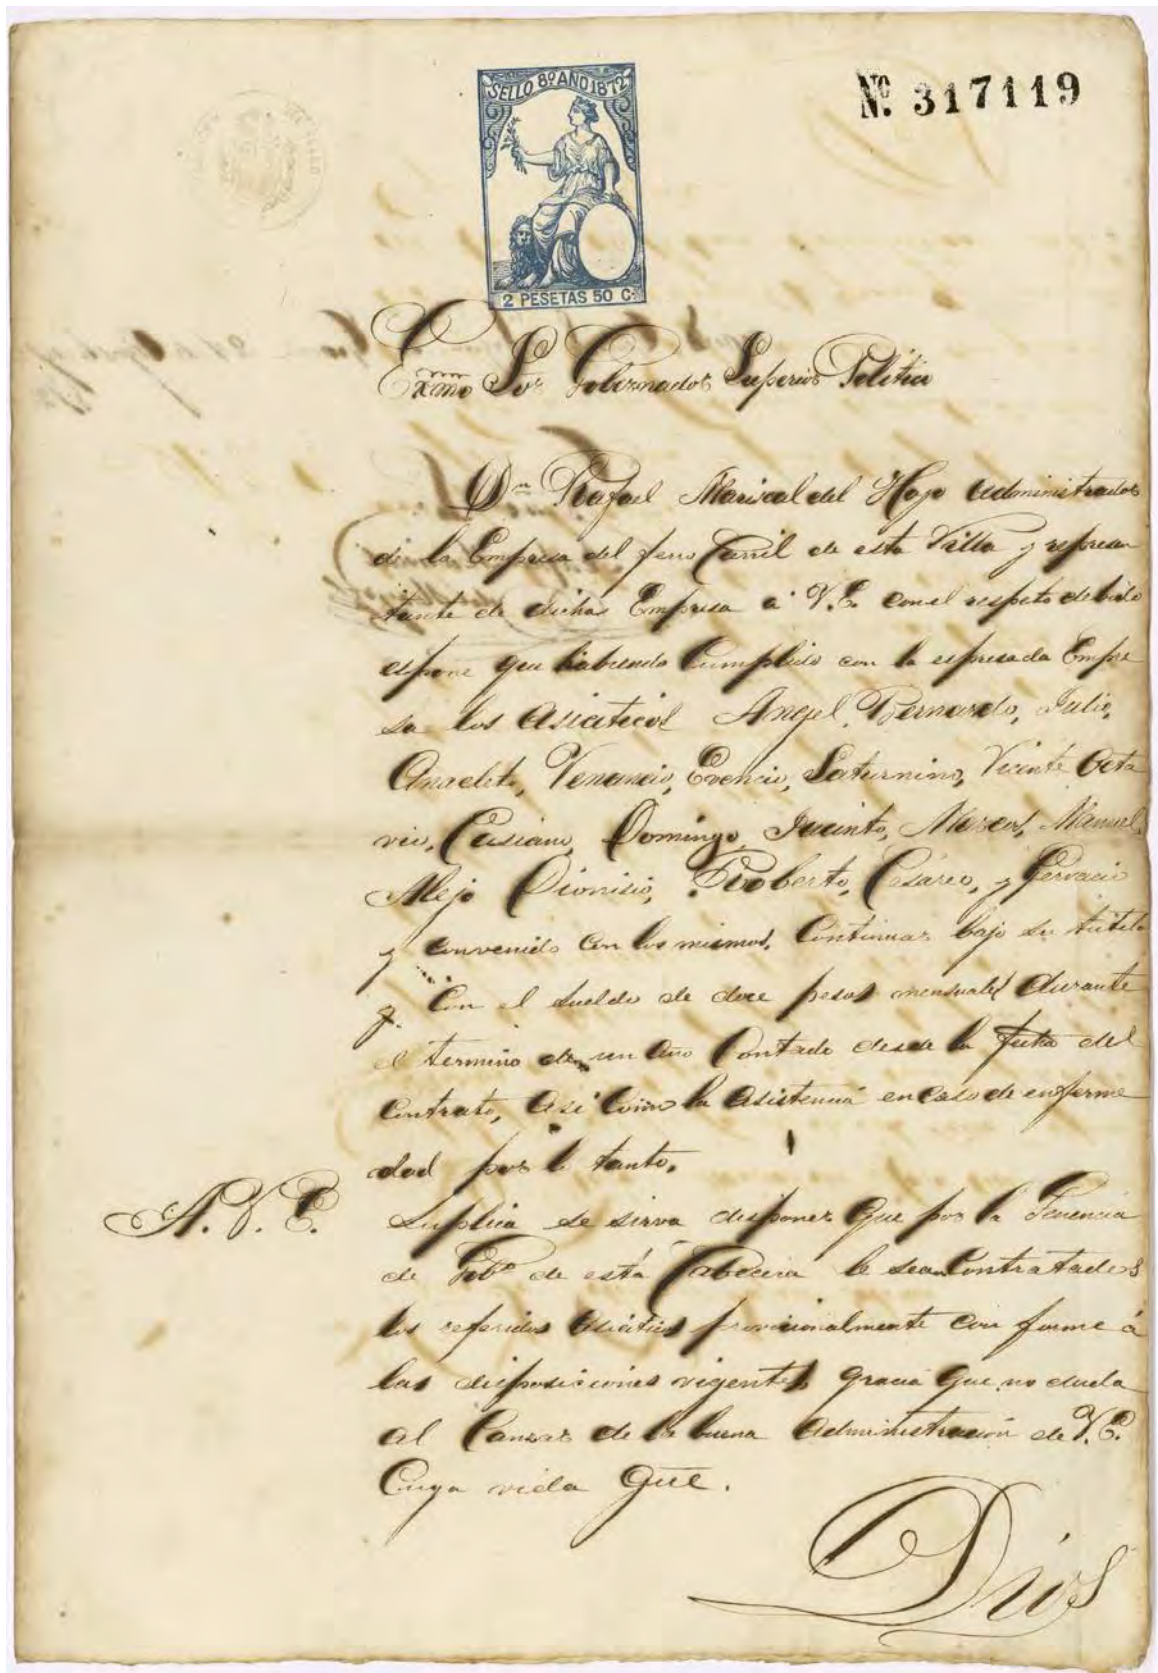 SELLO 8º AÑO 1872
Nº 317119
2 PESETAS 50 C.
Exmo Sor Gobernador Superior Politico
Dn Rafael Mariscal del Hoyo Administrador
de la Empresa del ferro Carril de esta Villa y represen
tante de dichas Empresa a V.E. con el respeto debido
espone que habiendo Cumplido con la espresada Empre
sa los Asiaticos Angel, Bernardo, Julio,
Anacleto, Venancio, Evencio, Saturnino, Vicente Octa
vio, Casiano, Domingo, Jacinto, Marcos, Manuel,
Alejo Dionisio, Roberto, Cesáreo, y Gervacio
y convenido con los mismos, Continuar bajo su tutela
y. Con el sueldo de doce pesos mensuales durante
el termino de un año Contado desde la fecha del
Contrato, Asi Como la Asistencia en caso de enferme
dad por lo tanto.
A. V. E. Suplica se sirva disponer que por la Tenencia
de Gobo de está Cabecera le sean Contratados
los referidos Asiáticos provisionalmente con forme á
las disposiciones vigentes, gracia que no duda
al Canzar de la buena Administracion de V.E.
Cuya vida gue.
Dios